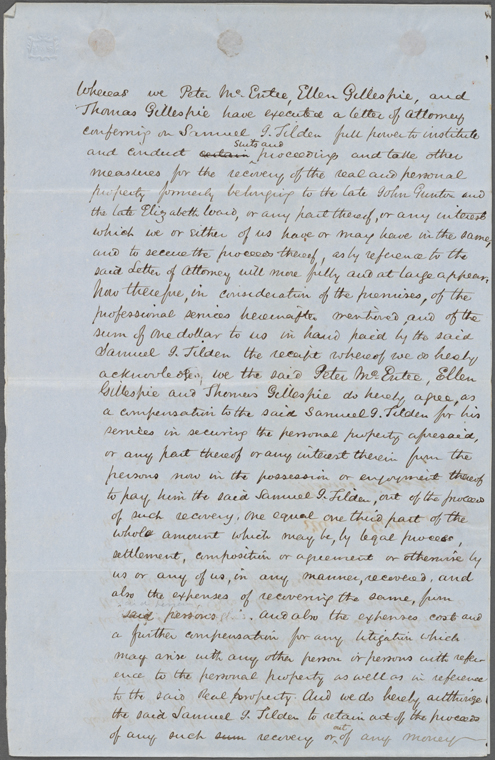 Whereas we Peter Mc. Entee, Ellen Gillespie, and
Thomas Gillespie have executed a letter of Attorney
conferring on Samuel J. Tilden full power to institute
Suits and
and conduct certain proceedings and take other
measures for the recovery of the real and personal
property formerly belonging to the late John Gunter and
the late Elizabeth Ward, or any part thereof, or any interest
which we or either of us have or may have in the same,
and to secure the proceeds thereof, as by reference to the
said Letter of Attorney will more fully and at large appear.
Now therefore, in consideration of the premises, of the
professional services hereinafter mentioned, and of the
sum of one dollar to us in hand paid by the said
Samuel J. Tilden the receipt whereof we do hereby
acknowledge, we the said Peter Mc. Entee, Ellen
Gillespie and Thomas Gillespie do hereby agree, as
a compensation to the said Samuel J. Tilden for his
services in securing the personal property aforesaid,
or any part thereof or any interest therein from the
persons now in the possession or enjoyment thereof
to pay him the said Samuel J. Tilden, out of the proceeds
of such recovery, one equal one third part of the
whole amount which may be, by legal process,
settlement, composition or agreement or otherwise by
us or any of us, in any manner, recovered, and
also the expenses of recovering the same, from
said persons. And also the expenses cost and
a further compensation for any litigation which
may arise with any other person or persons with refer-
ence to the personal property as well as in reference
to the said Real property. And we do hereby authorize
the said Samuel J. Tilden to retain out of the proceeds
of any such sum recovery or out of any money